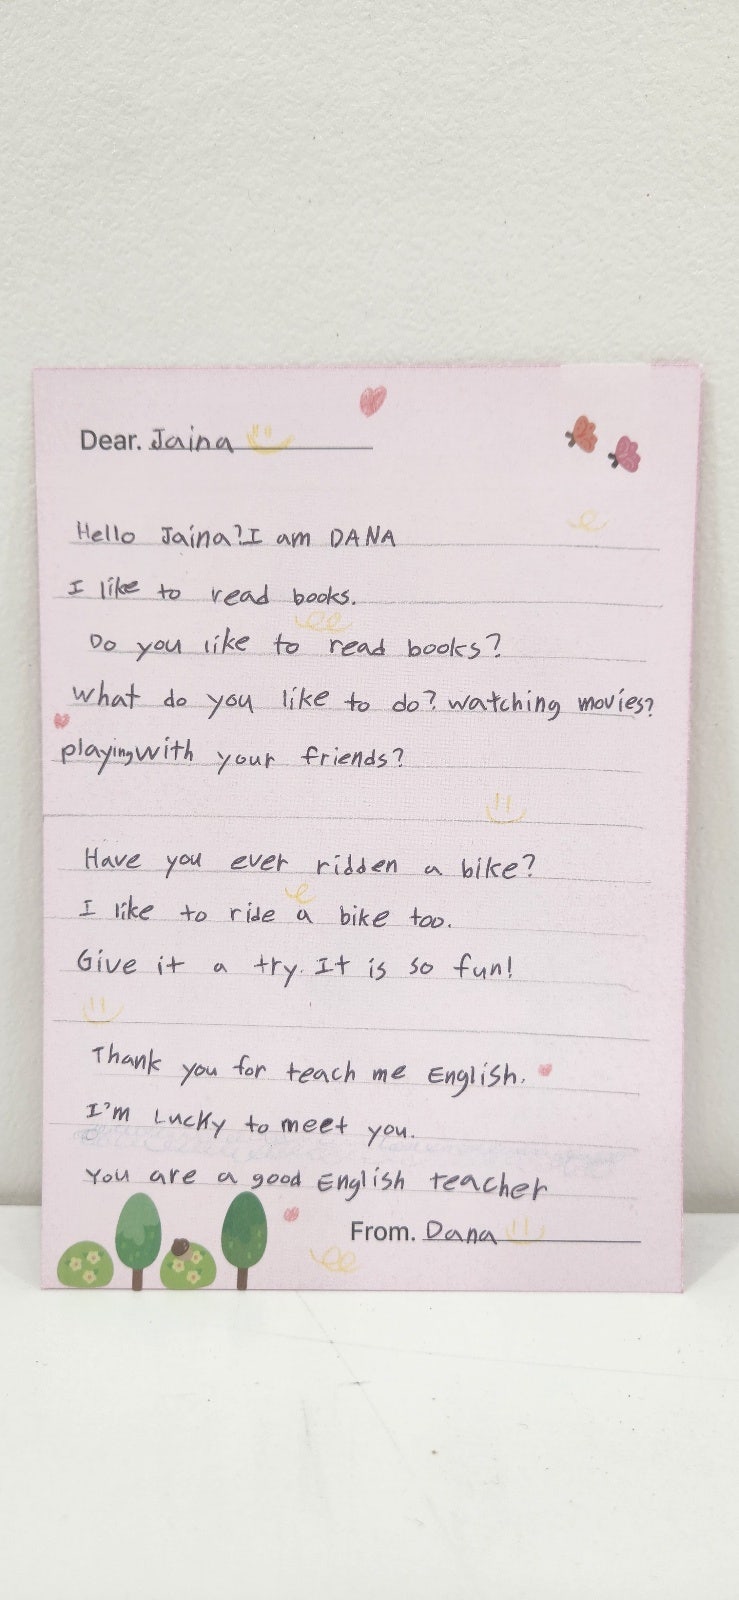 Dear. Jaina
Hello Jaina? I am DANA
I like to read books.
Do you like to read books?
What do you like to do? watching movies?
playing with your friends?
Have you ever ridden a bike?
I like to ride a bike too.
Give it a try. It is so fun!
Thank you for teach me English.
I'm Lucky to meet you.
You are a good English teacher
From. Dana